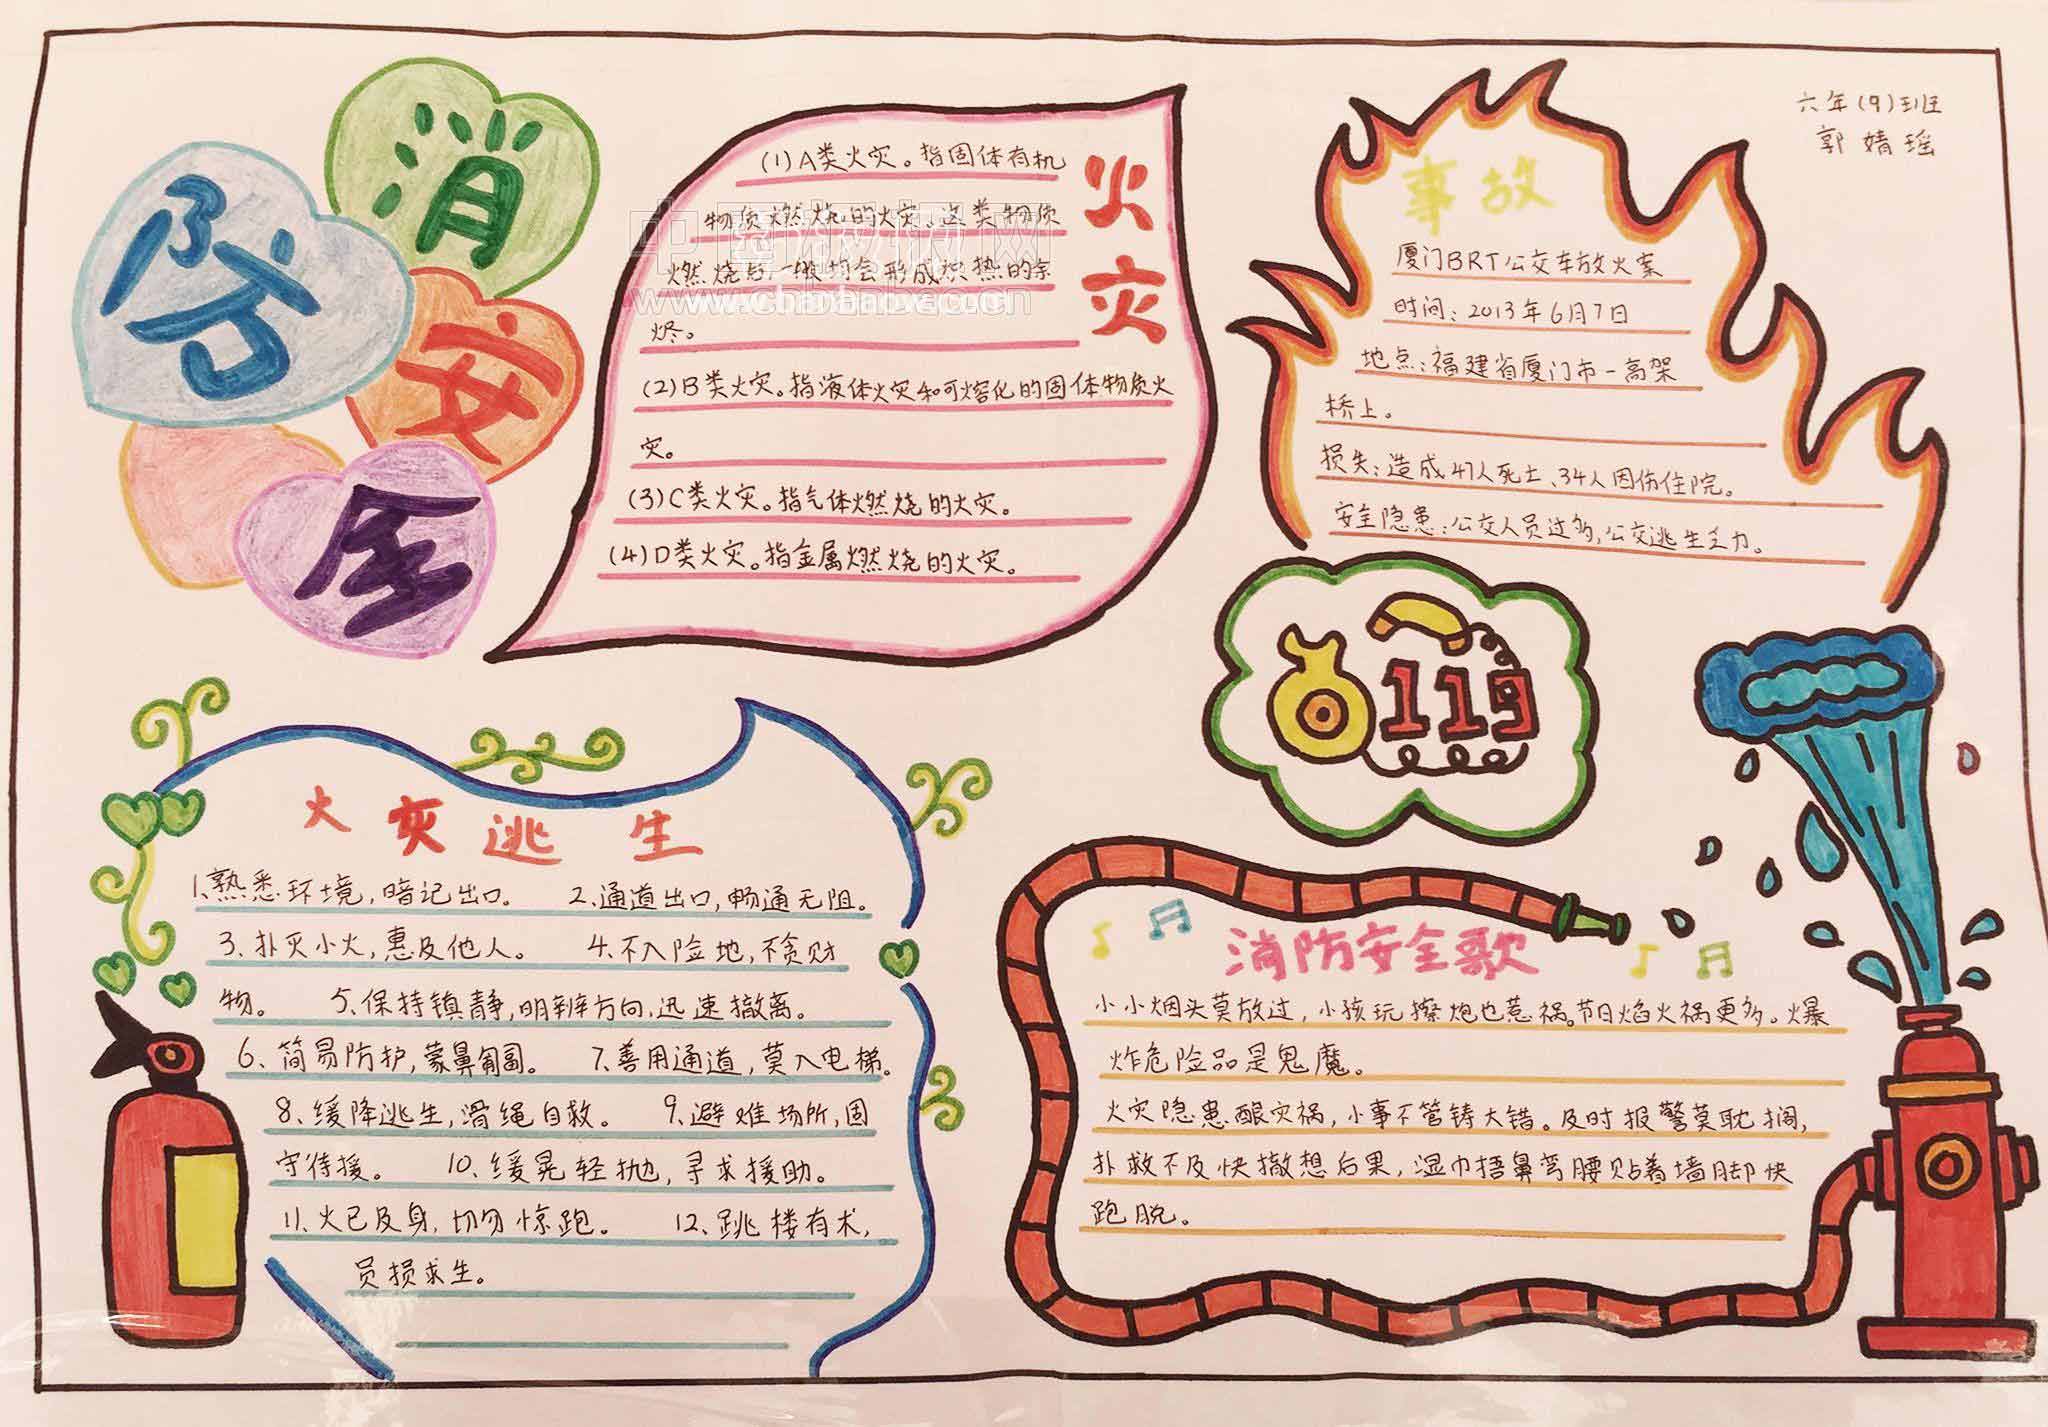 消
防
安
全
火灾
(1)A类火灾。指固体有机
物质燃烧的火灾。这类物质
燃烧后一般均会形成炽热的余
烬。
(2)B类火灾。指液体火灾和可熔化的固体物质火
灾。
(3)C类火灾。指气体燃烧的火灾。
(4)D类火灾。指金属燃烧的火灾。
中国板报网
www.chabaobao.cn
六年(9)班
郭婧瑶
事故
厦门BRT公交车放火案
时间:2013年6月7日
地点:福建省厦门市一高架
桥上。
损失:造成47人死亡、34人因伤住院。
安全隐患:公交人员过多,公交逃生乏力。
119
火灾逃生
1、熟悉环境,暗记出口。 2、通道出口,畅通无阻。
3、扑灭小火,惠及他人。 4、不入险地,不贪财
物。 5、保持镇静,明辨方向,迅速撤离。
6、简易防护,蒙鼻匍匐。 7、善用通道,莫入电梯。
8、缓降逃生,滑绳自救。 9、避难场所,固
守待援。 10、缓晃轻抛,寻求援助。
11、火已及身,切勿惊跑。 12、跳楼有术,
员损求生。
消防安全歌
小小烟头莫放过,小孩玩擦炮也惹祸。节日焰火祸更多。爆
炸危险品是鬼魔。
火灾隐患酿灾祸,小事不管铸大错。及时报警莫耽搁,
扑救不及快撤想后果,湿巾捂鼻弯腰贴着墙脚快
跑脱。